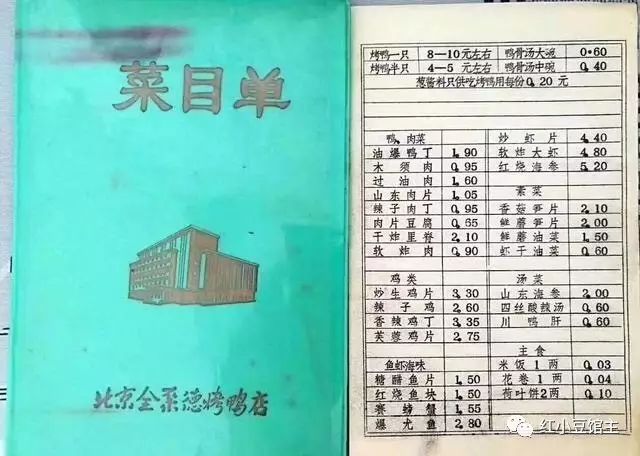 菜目单
北京全聚德烤鸭店
烤鸭一只 8—10元左右 鸭骨汤大碗 0.60
烤鸭半只 4—5元左右 鸭骨汤中碗 0.40
葱酱料只供吃烤鸭用每份0.20元
鸭、肉菜 炒虾片 4.40
油爆鸭丁 1.90 软炸大虾 4.80
木须肉 0.95 红烧海参 5.20
过油肉 1.60
山东肉片 1.05 素菜
辣子肉丁 0.95 香菇笋片 2.10
肉片豆腐 0.65 鲜蘑笋片 2.00
干炸里脊 2.10 鲜蘑油菜 1.50
软炸肉 0.90 虾干油菜 0.60
鸡类 汤菜
炒生鸡片 3.30 山东海参 2.00
辣子鸡 2.60 四丝酸辣汤 0.60
香辣鸡丁 3.35 川鸭肝 0.60
芙蓉鸡片 2.75
主食
鱼虾海味 米饭1两 0.03
糖醋鱼片 1.50 花卷1两 0.04
红烧鱼块 1.50 荷叶饼2两 0.10
赛螃蟹 1.55
爆尤鱼 2.80
红小豆馆主